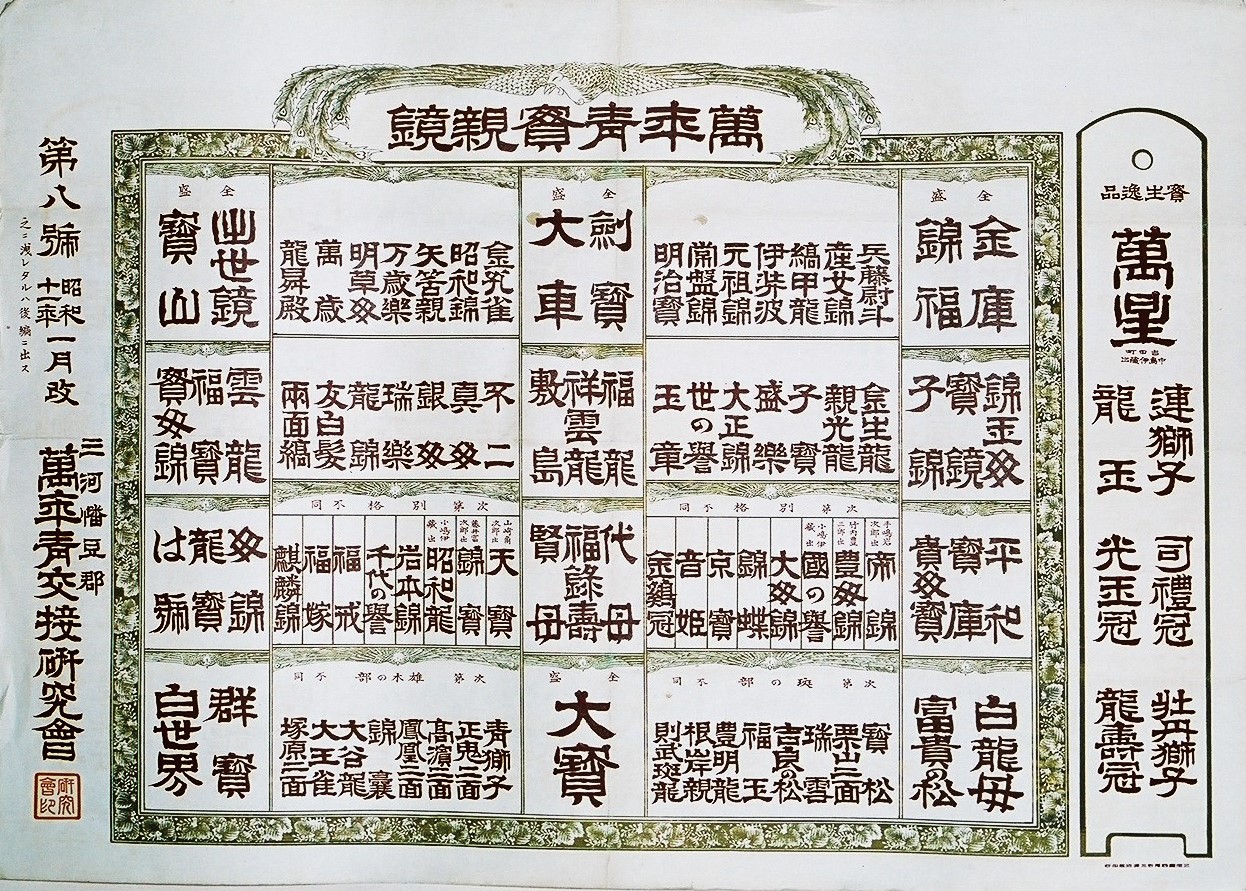 萬年青寳親鏡
寳生逸品
萬星
連獅子
龍玉
司禮冠
光玉冠
牡丹獅子
龍壽冠
全盛
金庫
錦福
兵藤尉斗
産女錦
縞甲龍
伊弉波
元祖錦
常盤錦
明治寳
全盛
劍寳
大車
金孔雀
昭和錦
矢筈親
万歳樂
明草㚑
萬歳
龍昇殿
全盛
出世鏡
寳山
錦玉㚑
寳鏡
子錦
金生龍
親光龍
子寳
盛樂
大正錦
世の譽
玉章
福龍
祥雲龍
敷島
不二
真㚑
銀㚑
瑞樂
龍錦
友白髪
兩面縞
雲龍
福寳
寳㚑錦
平和
寳庫
貴㚑寳
次第別格不同
帝錦
豊㚑錦
國の譽
大㚑錦
錦蝶
京寳
音姫
金鷄冠
代母
福錄壽
賢母
次第別格不同
天寳
錦寳
昭和龍
岩本錦
千代の譽
福戒
福嫁
麒麟錦
㚑錦
龍寳
は號
白龍母
富貴の松
次第斑の部不同
寳松
栗山二面
瑞雲
吉良の松
福玉
豊明龍
根岸親
則武斑龍
全盛
大寳
次第雄木の部不同
青獅子
正鬼二面
高濱二面
鳳凰二面
錦嚢
大谷龍
大王雀
塚原二面
群寳
白世界
第八號
昭和十一年一月改
之ニ洩レタルハ後編ニ出ス
三河幡豆郡
萬年青交接研究會
研究會印